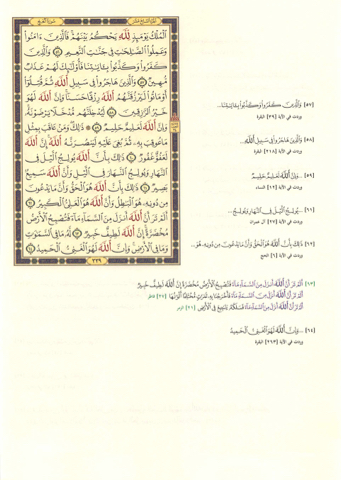 ٱلْمُلْكُ يَوْمَئِذٍ لِّلَّهِ يَحْكُمُ بَيْنَهُمْ فَٱلَّذِينَ ءَامَنُوا۟
وَعَمِلُوا۟ ٱلصَّٰلِحَٰتِ فِى جَنَّٰتِ ٱلنَّعِيمِ ٥٦ وَٱلَّذِينَ
كَفَرُوا۟ وَكَذَّبُوا۟ بِـَٔايَٰتِنَا فَأُو۟لَٰٓئِكَ لَهُمْ عَذَابٌ
مُّهِينٌ ٥٧ وَٱلَّذِينَ هَاجَرُوا۟ فِى سَبِيلِ ٱللَّهِ ثُمَّ قُتِلُوٓا۟
أَوْ مَاتُوا۟ لَيَرْزُقَنَّهُمُ ٱللَّهُ رِزْقًا حَسَنًا وَإِنَّ ٱللَّهَ لَهُوَ
خَيْرُ ٱلرَّٰزِقِينَ ٥٨ لَيُدْخِلَنَّهُم مُّدْخَلًا يَرْضَوْنَهُۥ
وَإِنَّ ٱللَّهَ لَعَلِيمٌ حَلِيمٌ ٥٩ ذَٰلِكَ وَمَنْ عَاقَبَ بِمِثْلِ
مَا عُوقِبَ بِهِۦ ثُمَّ بُغِىَ عَلَيْهِ لَيَنصُرَنَّهُ ٱللَّهُ إِنَّ ٱللَّهَ
لَعَفُوٌّ غَفُورٌ ٦٠ ذَٰلِكَ بِأَنَّ ٱللَّهَ يُولِجُ ٱلَّيْلَ فِى
ٱلنَّهَارِ وَيُولِجُ ٱلنَّهَارَ فِى ٱلَّيْلِ وَأَنَّ ٱللَّهَ سَمِيعٌۢ
بَصِيرٌ ٦١ ذَٰلِكَ بِأَنَّ ٱللَّهَ هُوَ ٱلْحَقُّ وَأَنَّ مَا يَدْعُونَ
مِن دُونِهِۦ هُوَ ٱلْبَٰطِلُ وَأَنَّ ٱللَّهَ هُوَ ٱلْعَلِىُّ ٱلْكَبِيرُ ٦٢
أَلَمْ تَرَ أَنَّ ٱللَّهَ أَنزَلَ مِنَ ٱلسَّمَآءِ مَآءً فَتُصْبِحُ ٱلْأَرْضُ
مُخْضَرَّةً إِنَّ ٱللَّهَ لَطِيفٌ خَبِيرٌ ٦٣ لَّهُۥ مَا فِى ٱلسَّمَٰوَٰتِ
وَمَا فِى ٱلْأَرْضِ وَإِنَّ ٱللَّهَ لَهُوَ ٱلْغَنِىُّ ٱلْحَمِيدُ ٦٤
٣٣٩
[٥٧] وَٱلَّذِينَ كَفَرُوا۟ وَكَذَّبُوا۟ بِـَٔايَٰتِنَا...
وردت في الآية [٣٩] البقرة
[٥٨] وَٱلَّذِينَ هَاجَرُوا۟ فِى سَبِيلِ ٱللَّهِ...
وردت في الآية [٢١٨] البقرة
[٥٩] ...وَإِنَّ ٱللَّهَ لَعَلِيمٌ حَلِيمٌ
وردت في الآية [١٢] النساء
[٦١] ...يُولِجُ ٱلَّيْلَ فِى ٱلنَّهَارِ وَيُولِجُ...
وردت في الآية [٢٧] آل عمران
[٦٢] ذَٰلِكَ بِأَنَّ ٱللَّهَ هُوَ ٱلْحَقُّ وَأَنَّ مَا يَدْعُونَ مِن دُونِهِۦ هُوَ...
وردت في الآية [٦] الحج
[٦٣] أَلَمْ تَرَ أَنَّ ٱللَّهَ أَنزَلَ مِنَ ٱلسَّمَآءِ مَآءً فَتُصْبِحُ ٱلْأَرْضُ مُخْضَرَّةً إِنَّ ٱللَّهَ لَطِيفٌ خَبِيرٌ
أَلَمْ تَرَ أَنَّ ٱللَّهَ أَنزَلَ مِنَ ٱلسَّمَآءِ مَآءً فَأَخْرَجْنَا بِهِۦ ثَمَرَٰتٍ مُّخْتَلِفًا أَلْوَٰنُهَا [٢٧] فاطر
أَلَمْ تَرَ أَنَّ ٱللَّهَ أَنزَلَ مِنَ ٱلسَّمَآءِ مَآءً فَسَلَكَهُۥ يَنَٰبِيعَ فِى ٱلْأَرْضِ [٢١] الزمر
[٦٤] ...وَإِنَّ ٱللَّهَ لَهُوَ ٱلْغَنِىُّ ٱلْحَمِيدُ
وردت في الآية [٢٦٧] البقرة